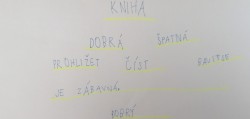 KNIHA
DOBRÁ ŠPATNÁ
PROHLÍŽET ČÍST
JE ZÁBAVNÁ.
DOBRÝ